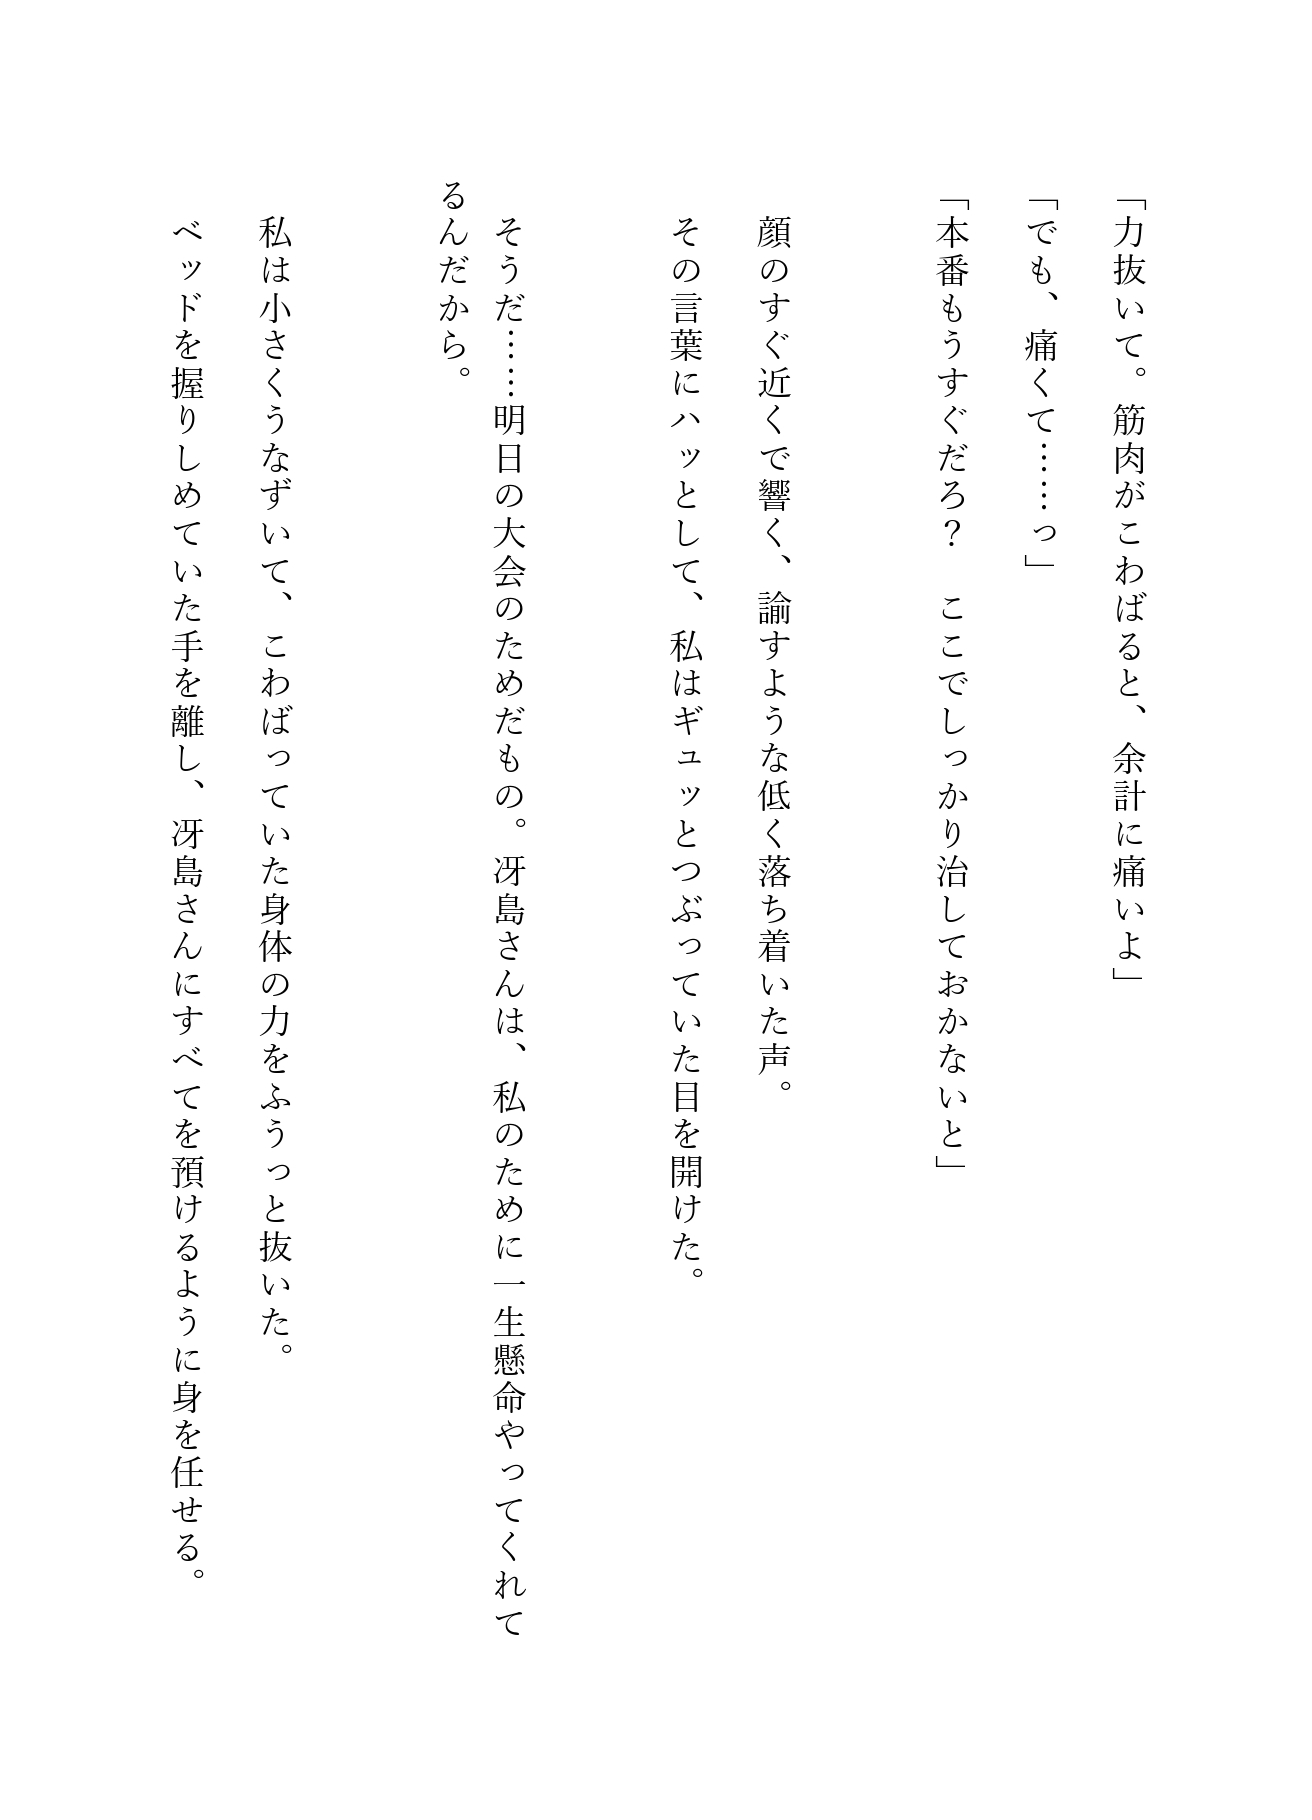 「力抜いて。筋肉がこわばると、余計に痛いよ」
「でも、痛くて……っ」
「本番もうすぐだろ？　ここでしっかり治しておかないと」
　顔のすぐ近くで響く、諭すような低く落ち着いた声。
　その言葉にハッとして、私はギュッとつぶっていた目を開けた。
　そうだ……明日の大会のためだもの。冴島さんは、私のために一生懸命やってくれて
るんだから。
　私は小さくうなずいて、こわばっていた身体の力をふうっと抜いた。
　ベッドを握りしめていた手を離し、冴島さんにすべてを預けるように身を任せる。